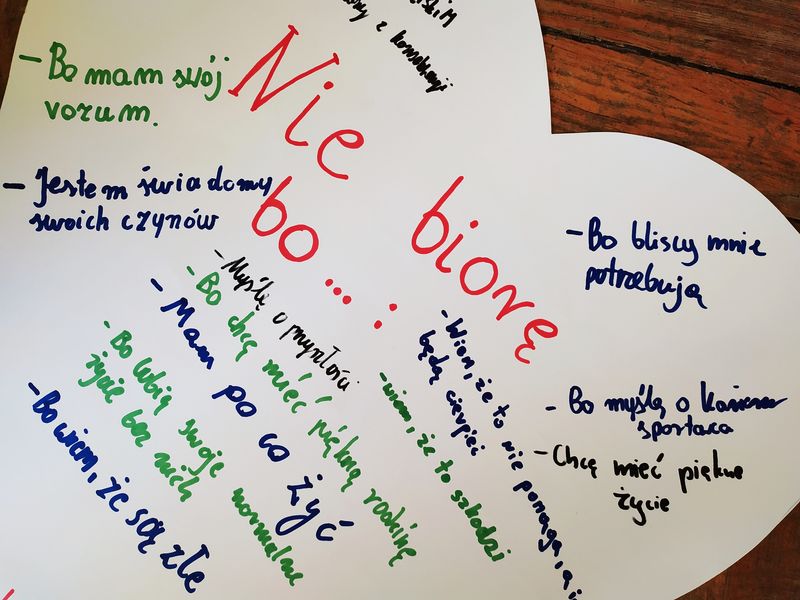 z konsekwencji
Nie biorę
bo...:
- Bo mam swój
vorum.
- Jestem świadomy
swoich czynów
- Myślę o przyszłości
- Bo chcę mieć piękną rodzinę
- Mam po co żyć
- Bo lubię swoje normalne
życie bez nich
- Bo wiem, że są złe
- Wiem, że to nie pomaga, a
będą cierpieć
- wiem, że to szkodzi
- Bo bliscy mnie
potrzebują
- Bo myślę o
sportaca
- Chcę mieć piękne
życie